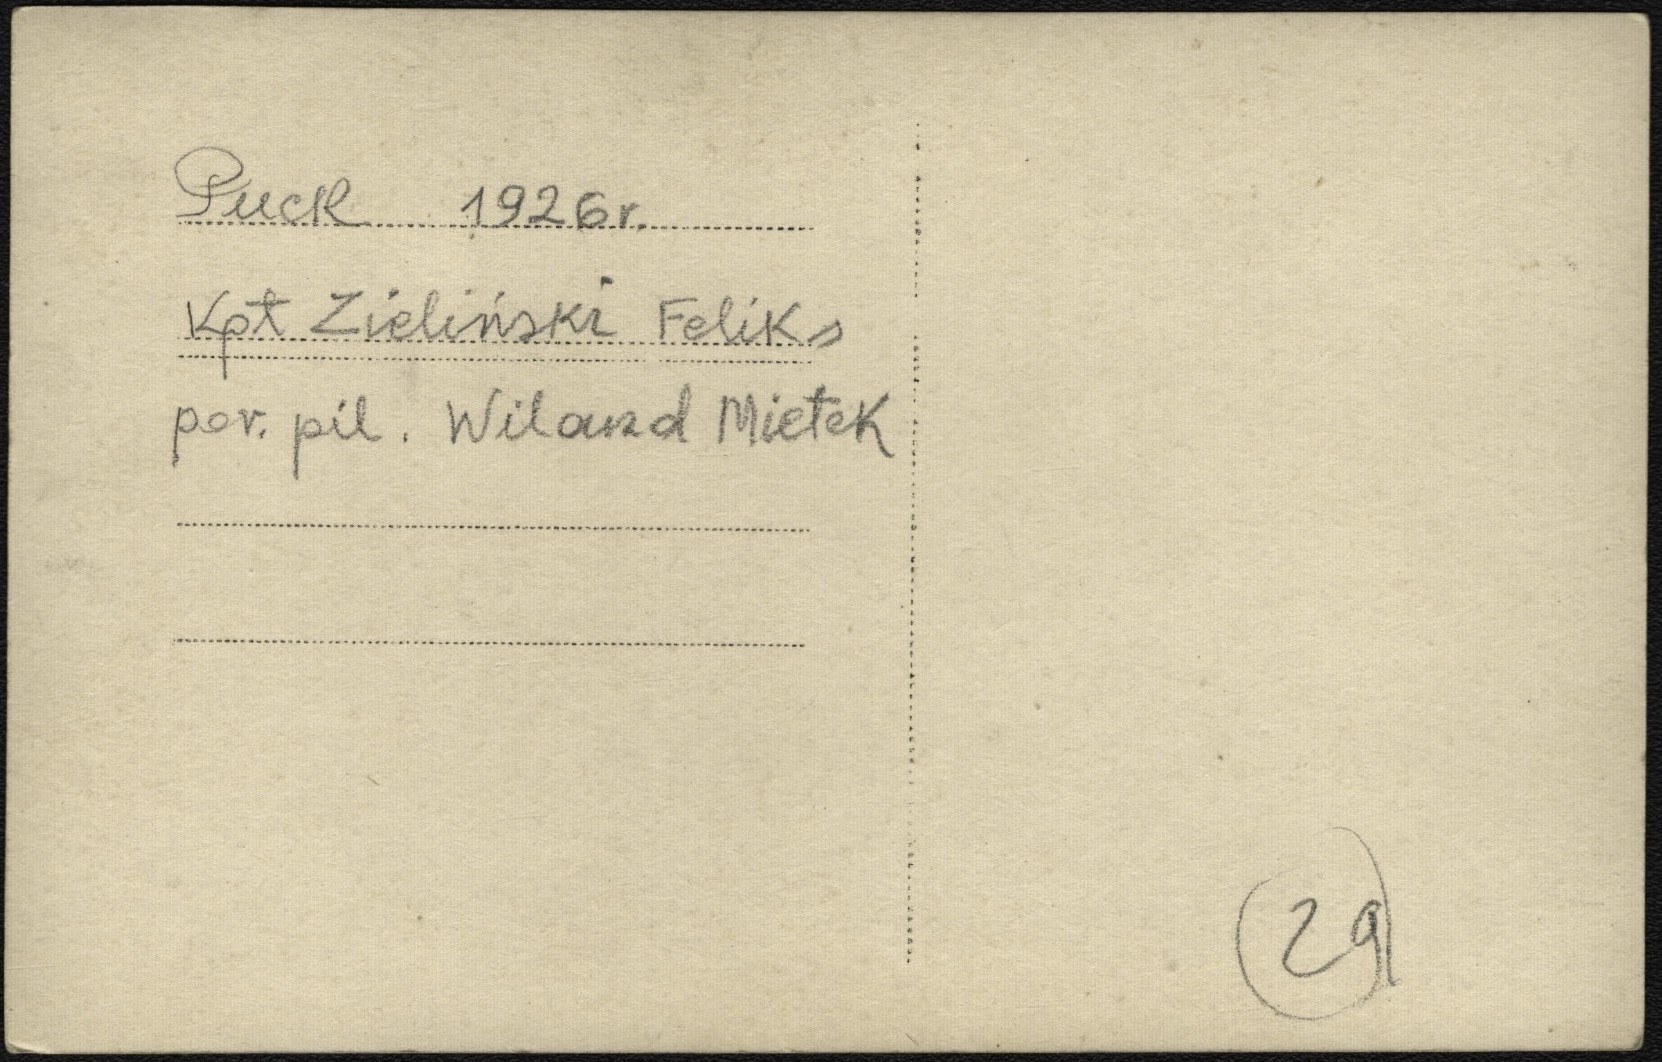 Puck 1926r.
Kpt Zieliński Feliks
por. pil. Mietek
29